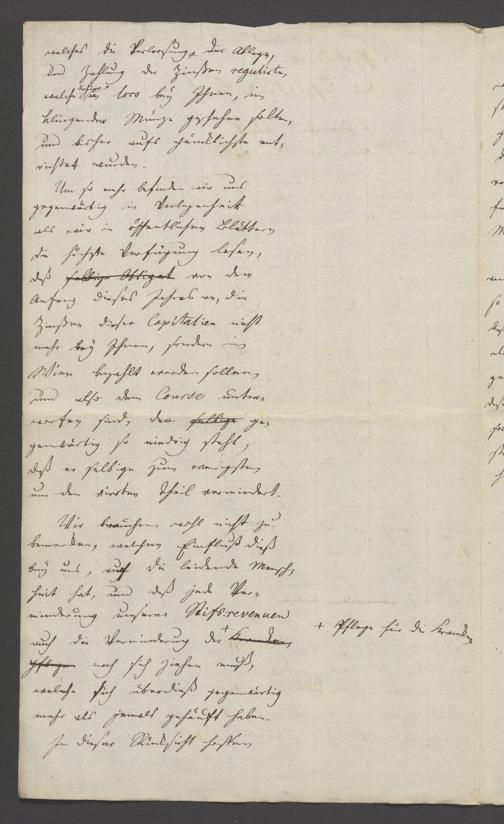 welches die Verlosung der Ablage,
und Zahlung der Zinßen regulirte,
welche loco bey Ihnen, in
klingender Münze geschehen sollte,
und bisher aufs pünktlichste ent-
richtet wurden.
Um so mehr befinden wir uns
gegenwärtig in Verlegenheit
als wir in öffentlichen Blättern
die höchste Verfügung lesen,
daß selbige Obligat von dem
Anfang dieses Jahres an, die
Zinßen dieser Capitalien nicht
mehr bey Ihnen, sondern in
Wien bezahlt werden sollen,
und also dem Course unter-
worfen sind, der selbige ge-
genwärtig so niedrig steht,
daß er selbige zum wenigsten
um den vierten Theil vermindert.
Wir brauchen wohl nicht zu
bemerken, welchen Einfluß dieß
bey uns, auf die leidende Mensch-
heit hat, und daß jede Ver-
minderung unserer Stifsrevenuen
auch die Verminderung der + Kranken
+ Pflege für die Kranken
pflegen nach sich ziehen muß,
welche sich überdieß gegenwärtig
mehr als jemals gehäuft haben.
In dieser Rücksicht hoffen